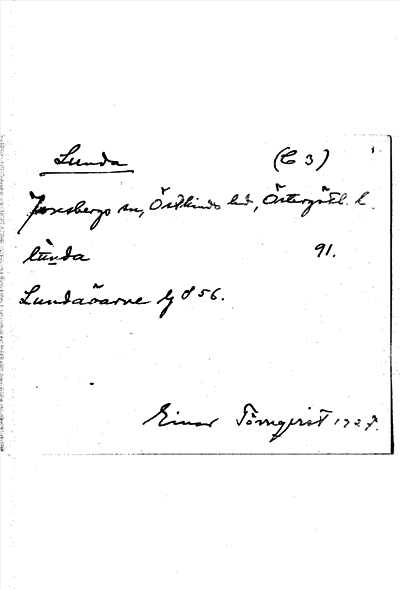 Lunda (C 3)
Yxnebergs sn, Östkinds hd, Östergötl. l.
lùnda 91.
Lundaöarne Gf 856.
Einar Törnqvist 1927.